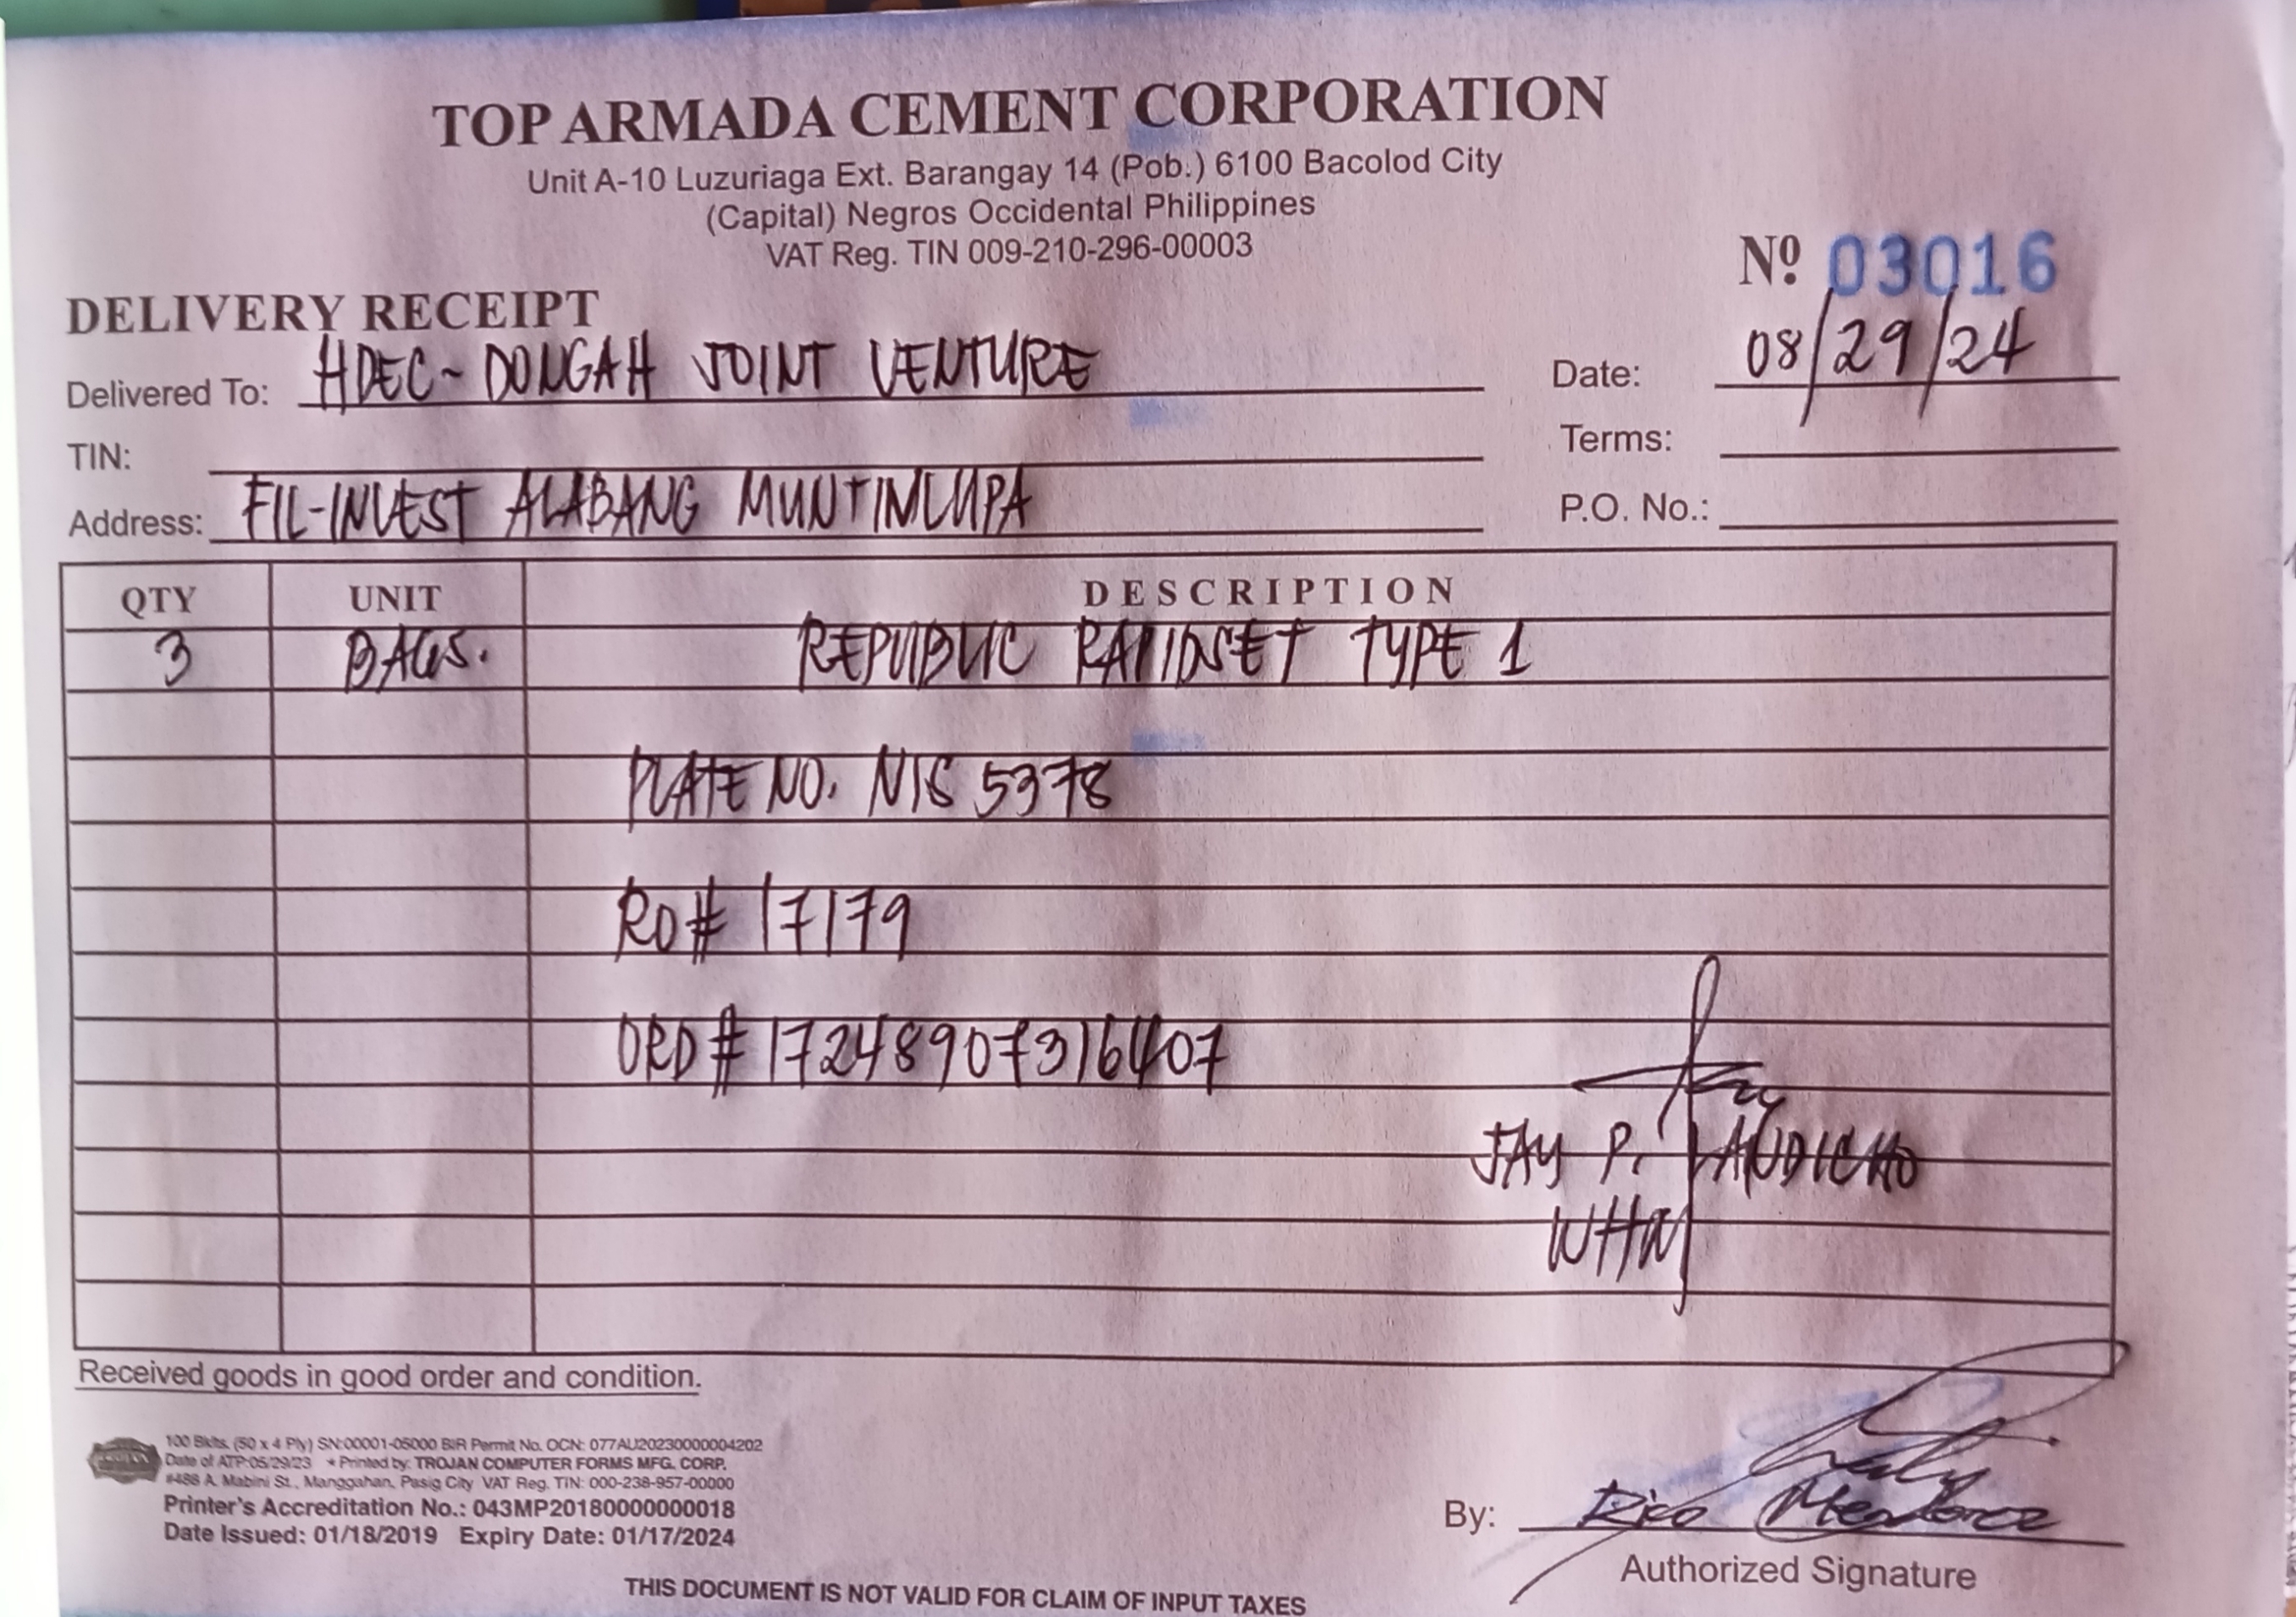 TOP ARMADA CEMENT CORPORATION
Unit A-10 Luzuriaga Ext. Barangay 14 (Pob.) 6100 Bacolod City
(Capital) Negros Occidental Philippines
VAT Reg. TIN 009-210-296-00003
Nº 03016
DELIVERY RECEIPT
Delivered To: HDEC-DONGAH JOINT VENTURE
Date: 08/29/24
TIN:
Terms:
Address: FIL-INVEST ALABANG MUNTINLUPA
P.O. No.:
QTY UNIT DESCRIPTION
3 BAGS. REPUBLIC RAPIDSET TYPE 1
PLATE NO. NIS 5378
RO# 17179
ORD# 17248907316407
JAY P. LANDICHO
WHM
Received goods in good order and condition.
100 Bklts. (50 x 4 Ply) SN:00001-05000 BIR Permit No. OCN: 077AU20230000004202
Date of ATP:05/29/23 * Printed by: TROJAN COMPUTER FORMS MFG. CORP.
#488 A. Mabini St., Manggahan, Pasig City VAT Reg. TIN: 000-238-957-00000
Printer's Accreditation No.: 043MP20180000000018
Date Issued: 01/18/2019 Expiry Date: 01/17/2024
By: Rico Mendoza
Authorized Signature
THIS DOCUMENT IS NOT VALID FOR CLAIM OF INPUT TAXES